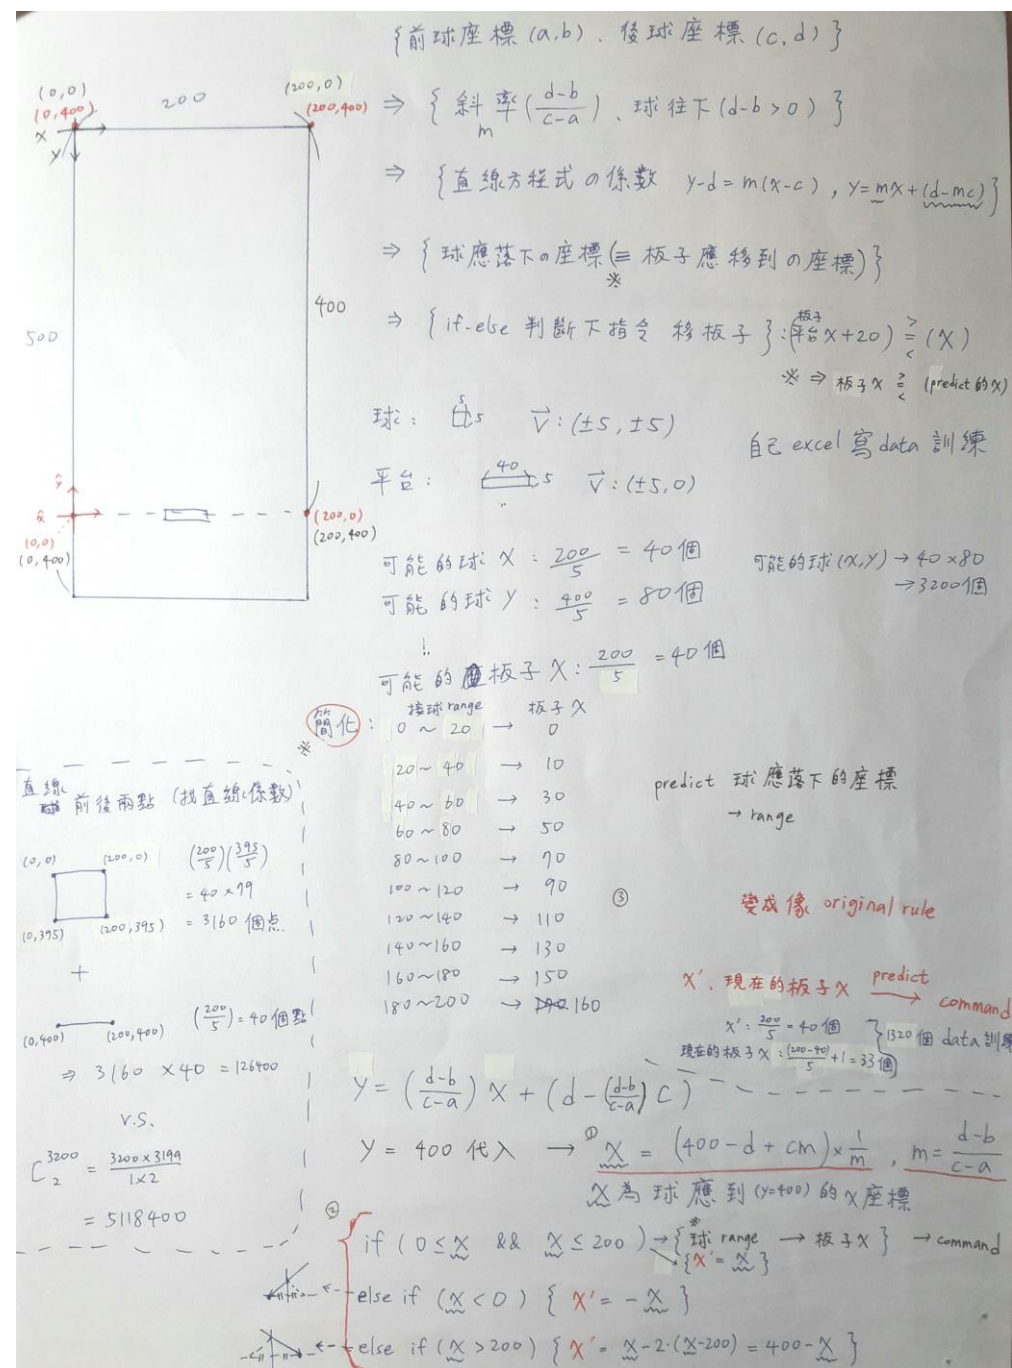 {前球座標(a,b)、後球座標(c,d)}
(0,0)
(0,400)
200
(200,0)
(200,400)
X
Y
⇒ {斜率(d-b/c-a)、球往下(d-b>0)}
m
⇒ {直線方程式の係數 y-d=m(x-c), y=mx+(d-mc)}
⇒ {球應落下の座標(≡ 板子應移到の座標)}
※
500
400
⇒ {if-else 判斷下指令 移板子}:(平台X+20) ≧< (X)
板子
※ ⇒ 板子X ≧< (predict的X)
球: 5 5 V:(±5,±5)
自己 excel 寫 data 訓練
平台: 40 5 V:(±5,0)
(0,0)
(0,400)
(200,0)
(200,400)
可能的球X: 200/5 = 40個
可能的球(X,Y) → 40×80
→3200個
可能的球Y: 400/5 = 80個
可能的板子X: 200/5 = 40個
※ 簡化:
接球range 板子X
0~20 → 0
20~40 → 10
40~60 → 30
60~80 → 50
80~100 → 70
100~120 → 90
120~140 → 110
140~160 → 130
160~180 → 150
180~200 → 160
predict 球應落下的座標
→ range
③
變成像 original rule
X'、現在的板子X predict → command
X': 200/5 = 40個
現在的板子X: (200-40)/5+1=33個
}1320個 data 訓練
直線 前後兩點 (找直線係數)
(0,0) (200,0)
(0,395) (200,395)
(200/5)(395/5)
=40×79
=3160個点
+
(0,400) (200,400)
(200/5)=40個點
⇒ 3160×40=126400
v.s.
C 3200 2 = 3200×3199/1×2
= 5118400
Y=(d-b/c-a)X+(d-(d-b/c-a)C)
Y=400 代入 → ① X=(400-d+cm)×1/m, m=d-b/c-a
X為球應到(y=400)的X座標
②
if (0≤X && X≤200)→{球range → 板子X} → command
※
{X'=X}
else if (X<0) {X'=-X}
else if (X>200) {X'=X-2·(X-200)=400-X}